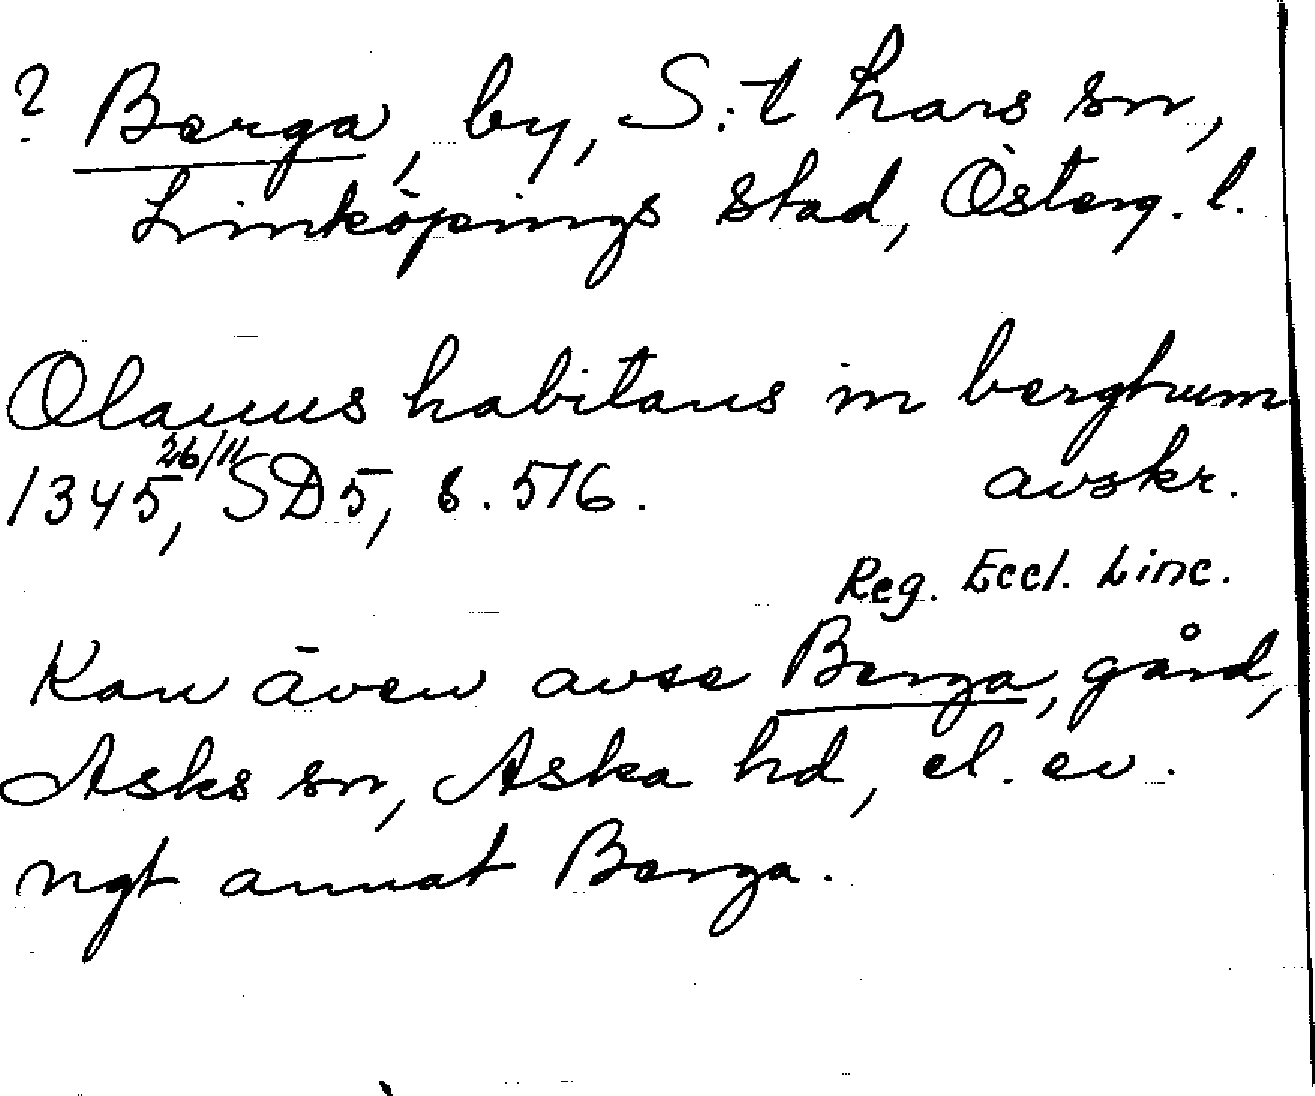 ? Berga, by, S:t Lars sn,
Linköpings stad, Österg. l.
Olauus habitans in berghum
1345 26/11, SD5, s. 576. avskr.
Reg. Eccl. Linc.
Kan även avse Berga, gård,
Asks sn, Aska hd, el. ev.
ngt annat Berga.